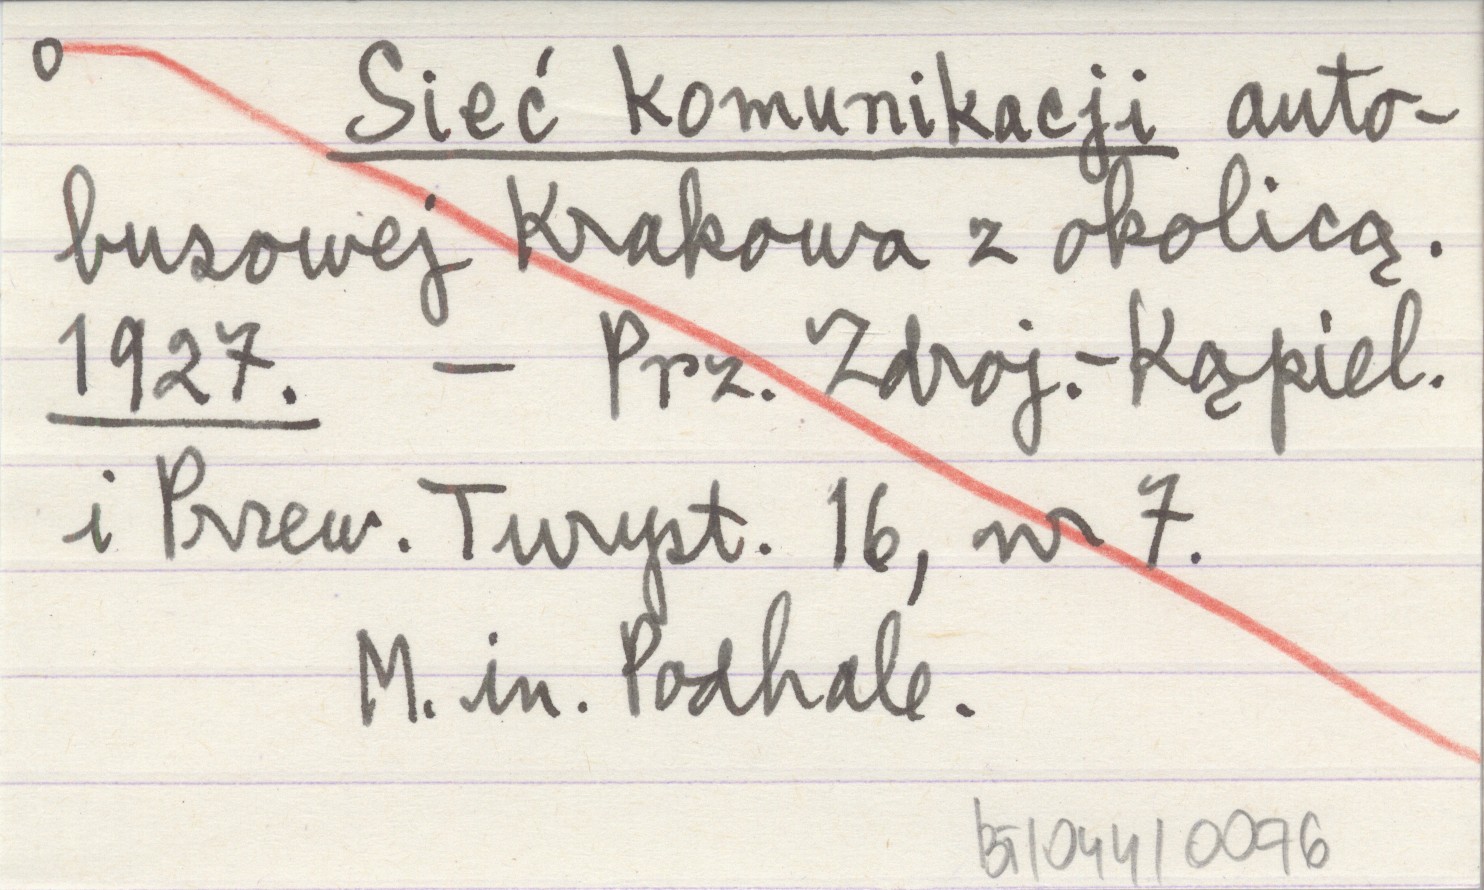 o Sieć komunikacji auto-
busowej Krakowa z okolicą.
1927. — Prz. Zdroj.-Kąpiel.
i Przew. Turyst. 16, nr 7.
M. in. Podhale.
BT/044/0096